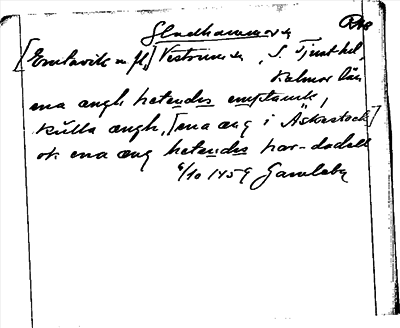 Gladhammars
[Emtavik m fl,] Vestrum sn, S. Tjust hd,
Kalmar län
ena ængh hetendis emptauik,
kulla ængh, [ena æng i Askastock]
ok ena æng hetendis har-dadell
6/10 1459 Gamleby